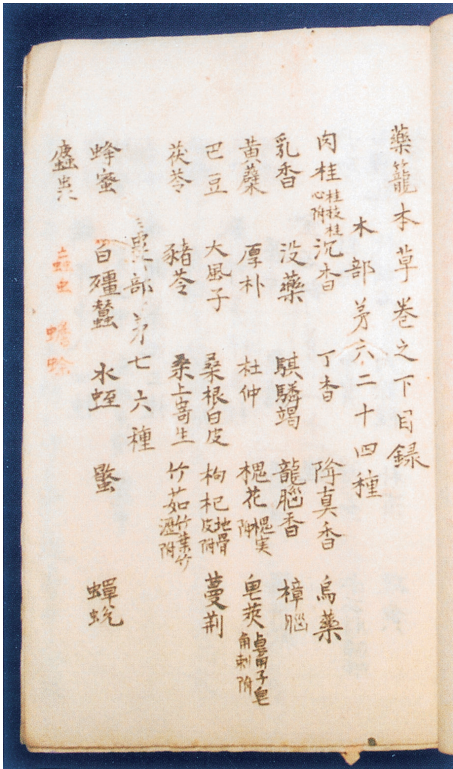 藥籠本草卷之下目録
木部苐六二十四種
肉桂 桂枝桂心附 沉香 丁香 降真香 烏藥
乳香 没藥 騏驎竭 龍腦香 樟腦
黄蘗 厚朴 杜仲 槐花 槐実附 皂莢 皂角子皂角刺附
巴豆 大風子 桑根白皮 枸杞 地骨皮附 蔓荊
茯苓 豬苓 桑上寄生 竹茹 竹葉竹瀝附
部苐七六種
蜂蜜 白殭蠶 水蛭 蟬蛻
蟾蜍